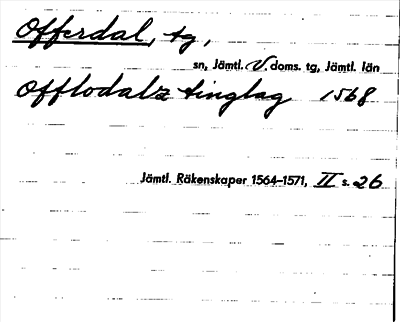 Offerdal, tg,
sn, Jämtl. V. doms. tg, Jämtl. län
Offlodalz tinglag 1568
Jämtl. Räkenskaper 1564–1571, II s. 26